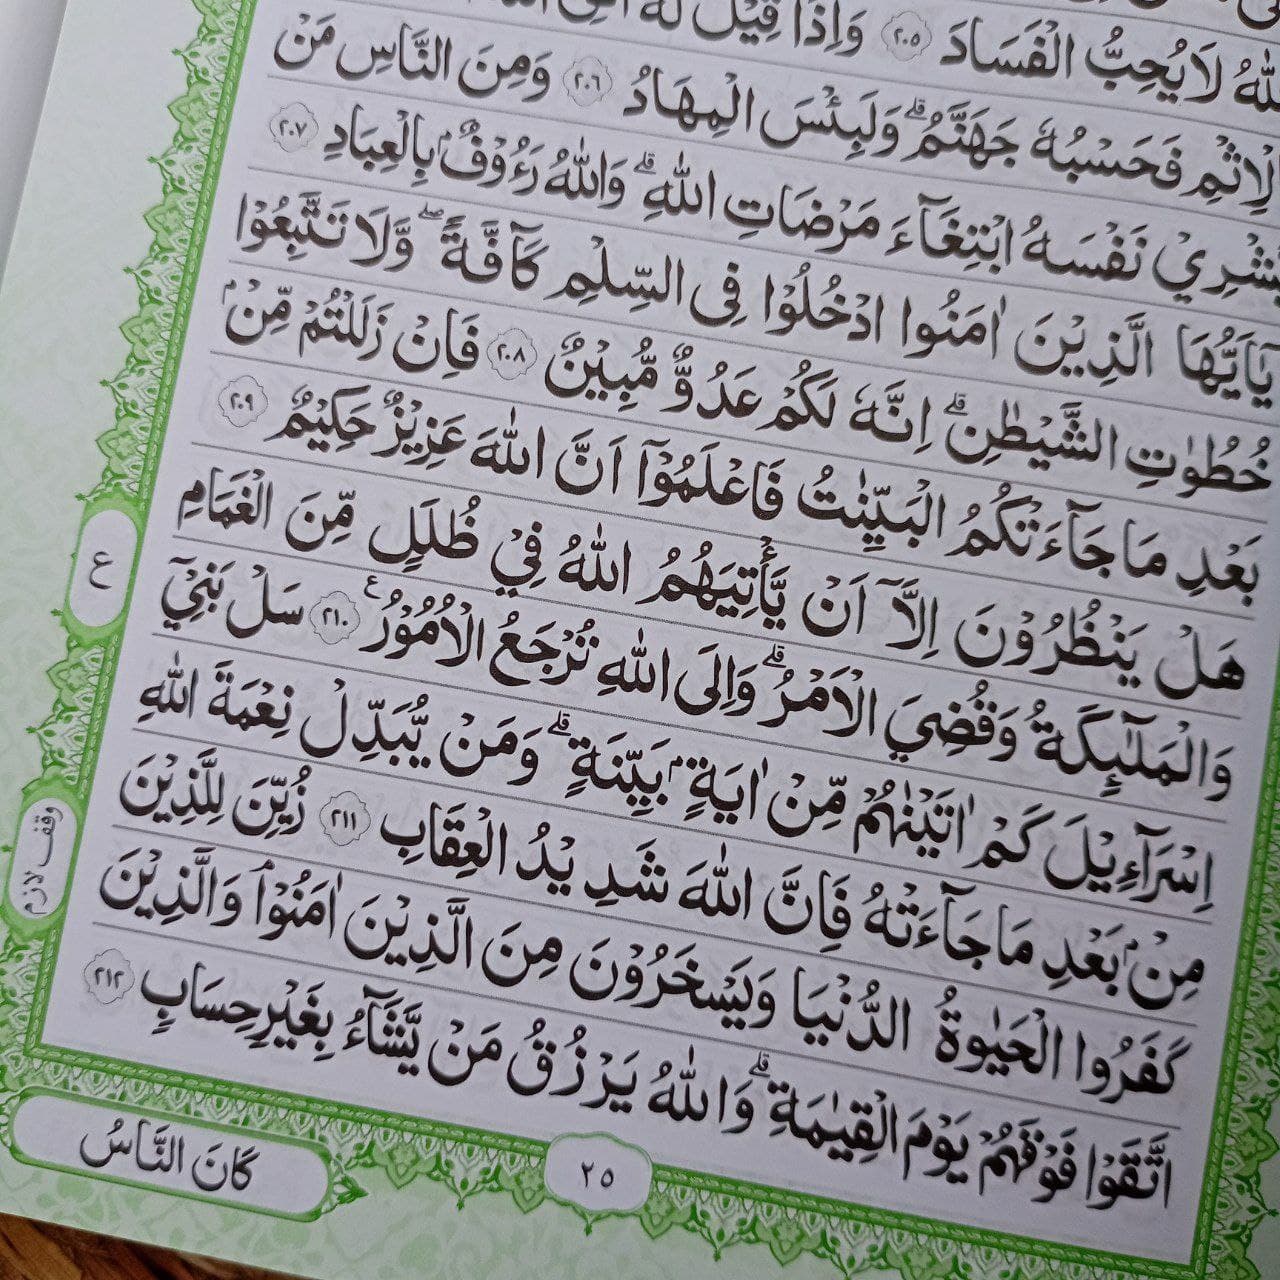 اللهُ لَا يُحِبُّ الْفَسَادَ ٢٠٥ وَاِذَا قِيْلَ لَهُ
الْاِثْمِ فَحَسْبُهٗ جَهَنَّمُ ۗ وَلَبِئْسَ الْمِهَادُ ٢٠٦ وَمِنَ النَّاسِ مَنْ
يَّشْرِيْ نَفْسَهُ ابْتِغَاۤءَ مَرْضَاتِ اللّٰهِ ۗ وَاللّٰهُ رَءُوْفٌۢ بِالْعِبَادِ ٢٠٧
يٰٓاَيُّهَا الَّذِيْنَ اٰمَنُوا ادْخُلُوْا فِى السِّلْمِ كَاۤفَّةً ۖ وَّلَا تَتَّبِعُوْا
خُطُوٰتِ الشَّيْطٰنِ ۗ اِنَّهٗ لَكُمْ عَدُوٌّ مُّبِيْنٌ ٢٠٨ فَاِنْ زَلَلْتُمْ مِّنْۢ
بَعْدِ مَا جَاۤءَتْكُمُ الْبَيِّنٰتُ فَاعْلَمُوْٓا اَنَّ اللّٰهَ عَزِيْزٌ حَكِيْمٌ ٢٠٩
هَلْ يَنْظُرُوْنَ اِلَّآ اَنْ يَّأْتِيَهُمُ اللّٰهُ فِيْ ظُلَلٍ مِّنَ الْغَمَامِ
وَالْمَلٰۤىِٕكَةُ وَقُضِيَ الْاَمْرُ ۗ وَاِلَى اللّٰهِ تُرْجَعُ الْاُمُوْرُ ࣖ ٢١٠ سَلْ بَنِيْٓ
اِسْرَاۤءِيْلَ كَمْ اٰتَيْنٰهُمْ مِّنْ اٰيَةٍۢ بَيِّنَةٍ ۗ وَمَنْ يُّبَدِّلْ نِعْمَةَ اللّٰهِ
مِنْۢ بَعْدِ مَا جَاۤءَتْهُ فَاِنَّ اللّٰهَ شَدِيْدُ الْعِقَابِ ٢١١ زُيِّنَ لِلَّذِيْنَ
كَفَرُوا الْحَيٰوةُ الدُّنْيَا وَيَسْخَرُوْنَ مِنَ الَّذِيْنَ اٰمَنُوْا ۘ وَالَّذِيْنَ
اتَّقَوْا فَوْقَهُمْ يَوْمَ الْقِيٰمَةِ ۗ وَاللّٰهُ يَرْزُقُ مَنْ يَّشَاۤءُ بِغَيْرِ حِسَابٍ ٢١٢
ع
وقف لازم
٢٥
كَانَ النَّاسُ